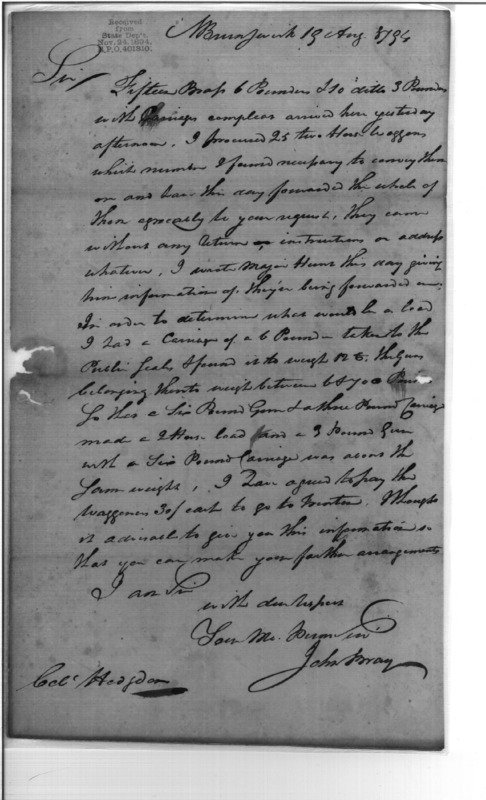 Received
from
State Dept.
Nov. 24, 1894.
R.P.O, 401810.
NBrunswick 19 Aug. 1794
Sir
Fifteen Brass 6 Pounders & 10 ditto 3 Pounders
with Carriages compleat arrived here yesterday
afternoon, I procured 25 two Horse Waggons
which number I found necessary to convey them
on and have this day forwarded the whole of
them agreeably to your request, they came
without any Return or instructions or address
whatever, I wrote Major Hunt this day giving
him information of their being forwarded on.
In order to determine what would be a load
I had a Carriage of a 6 Pounder taken to the
Public Scales & found it to weigh 12 the Guns
belonging thereto weigh between 6 & 700
So that a Six Pound Gun & a three Pound Carriage
made a 2 Horse load and a 3 Pound Gun
with a Six Pound Carriage was about the
same weight, I have agreed to pay the
Waggoners 30/ each to go to Trenton. I thought
it adviseable to give you this information so
that you can make your farther arrangements
I am Sir
with due respect
Your
John Bray
Colo. Hodgdon